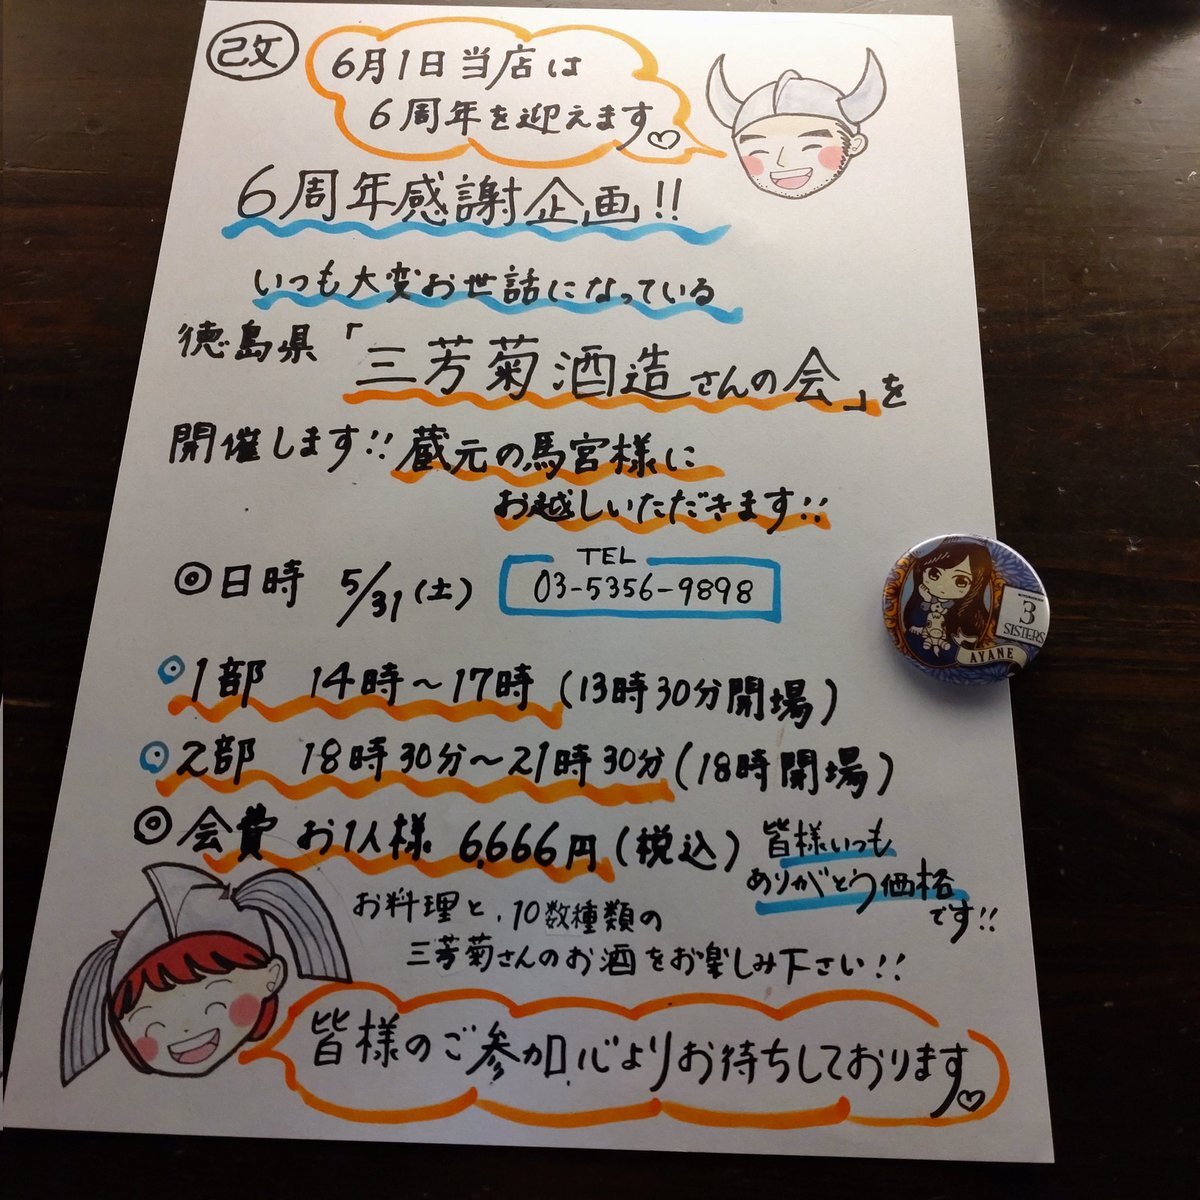 改
6月1日当店は
6周年を迎えます♡
6周年感謝企画!!
いつも大変お世話になっている
徳島県「三芳菊酒造さんの会」を
開催します!!蔵元の馬宮様に
お越しいただきます!!
◎日時 5/31(土)
TEL
03-5356-9898
1部 14時〜17時(13時30分開場)
2部 18時30分〜21時30分(18時開場)
◎会費 お1人様 6,666円(税込)
皆様いつも
ありがとう価格
です!!
お料理と、10数種類の
三芳菊さんのお酒をお楽しみ下さい!!
皆様のご参加心よりお待ちしております♡
3
SISTERS
AYANE